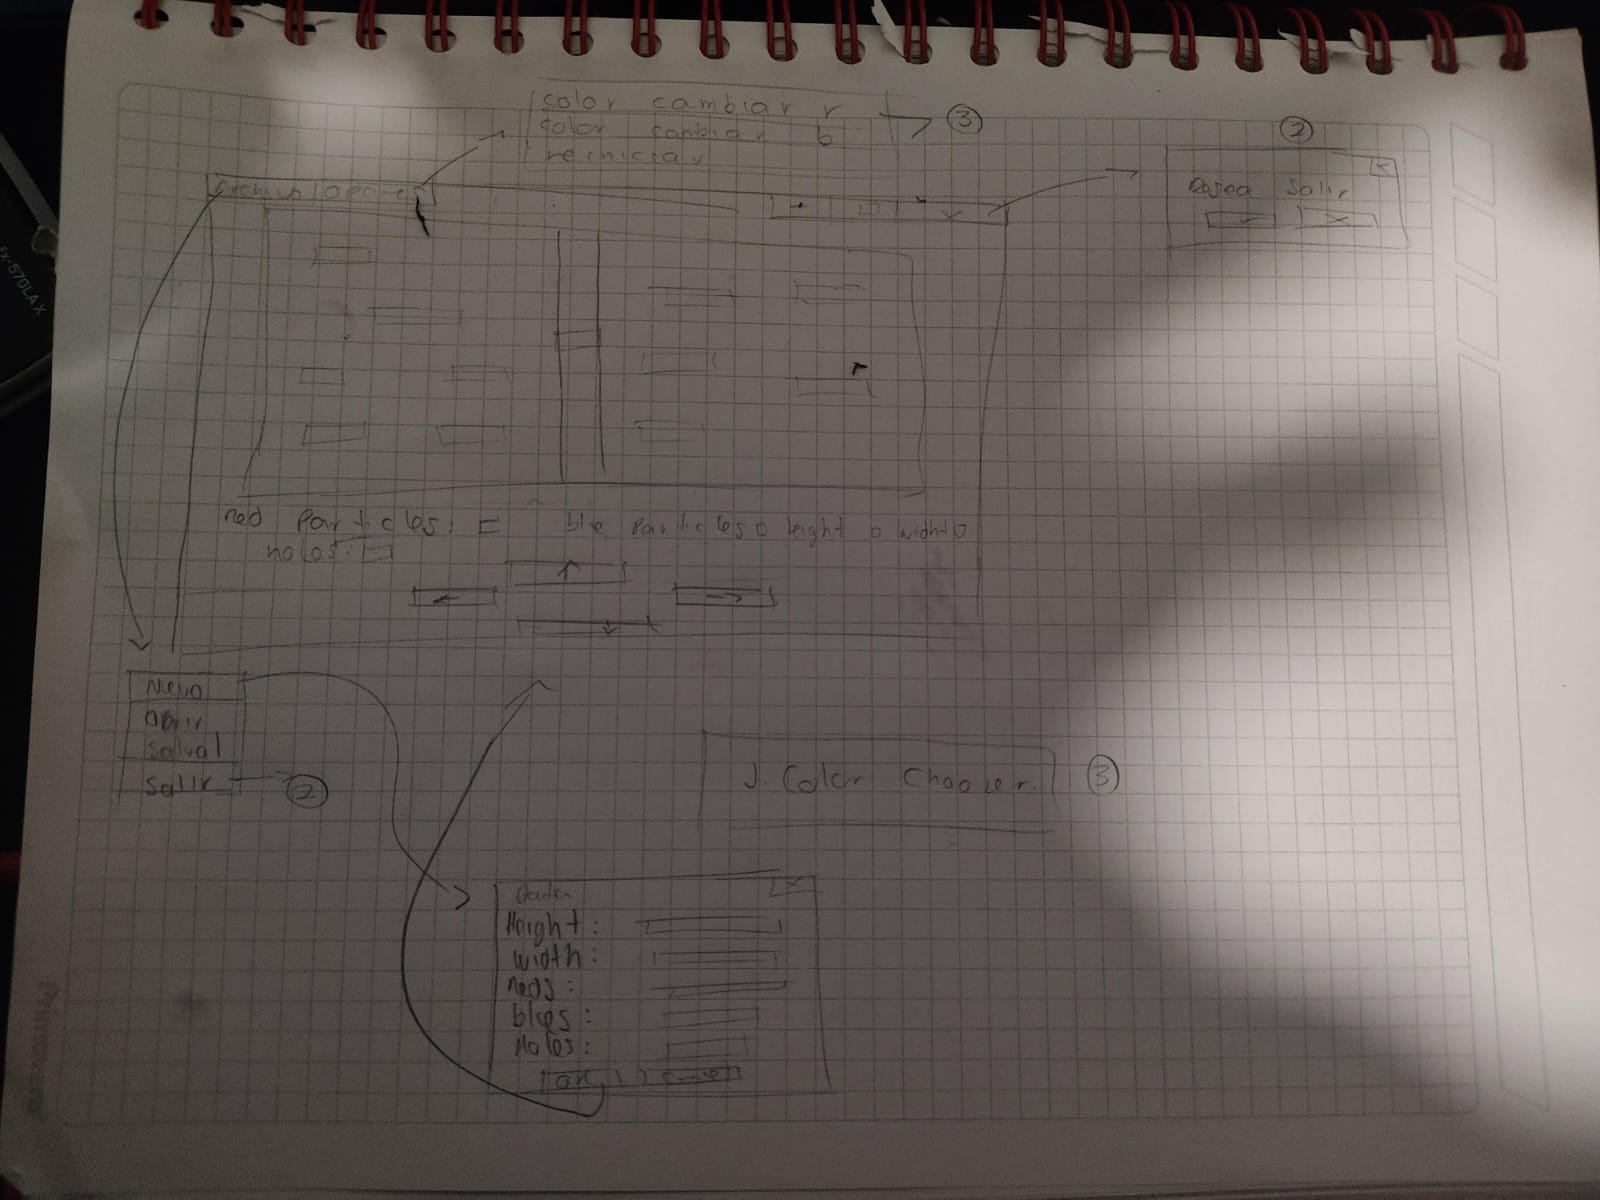 color cambiar r
color cambiar b
reiniciar
3
2
Desea salir
x
archivo
x
red particles:
blue particles
height
width
holes:
↑
←
→
↓
Nuevo
Abrir
Salvar
Salir
2
J. Color Chooser.
3
Data
x
Height:
width:
reds:
blues:
Holes:
OK
fx-570LA X